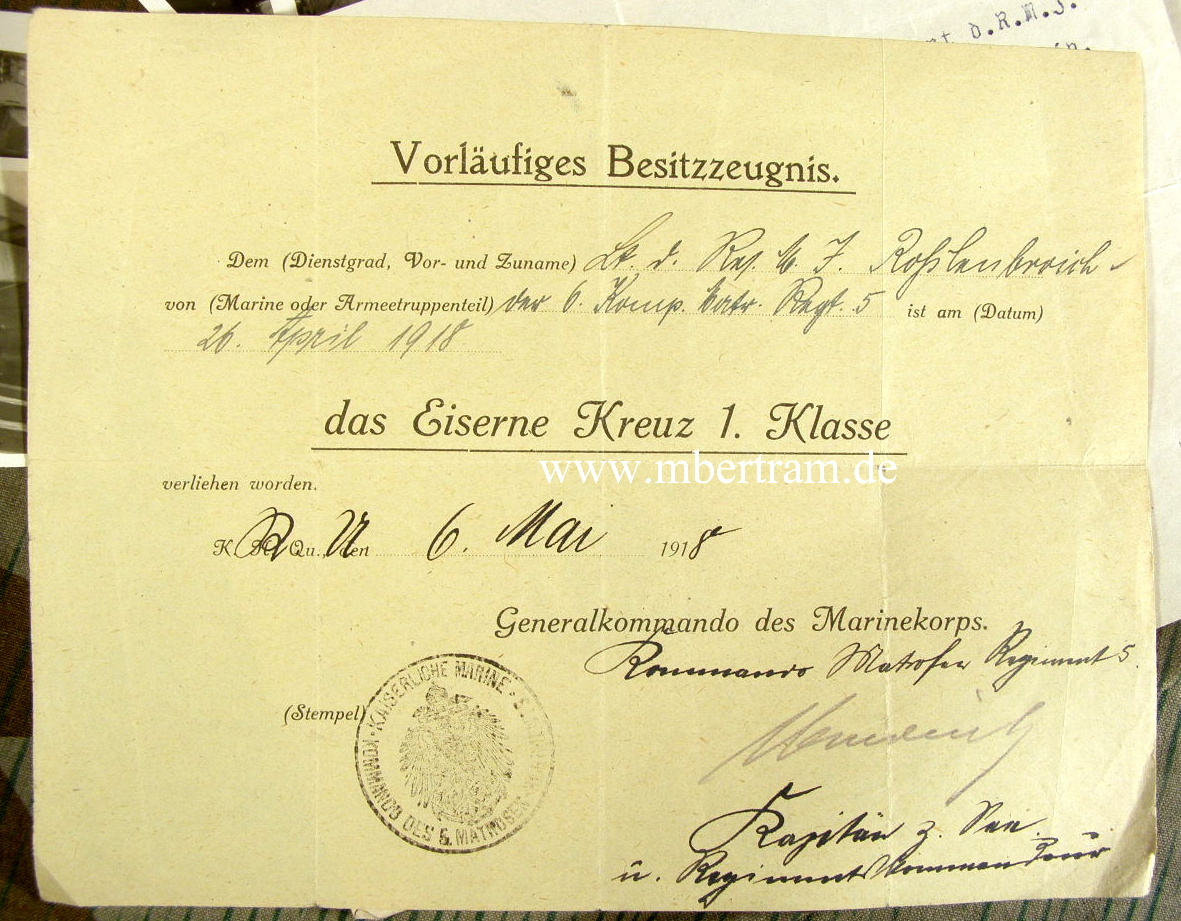 d. R. M. J.
Vorläufiges Besitzzeugnis.
Dem (Dienstgrad, Vor- und Zuname) Lt. d. Res. J. Rohlenbroich
von (Marine oder Armeetruppenteil) der 6. Komp. Matr. Regt. 5 ist am (Datum)
26. April 1918
das Eiserne Kreuz 1. Klasse
www.mbertram.de
verliehen worden.
K. Qu., den 6. Mai 1918
Generalkommando des Marinekorps.
Kommando Matrosen Regiment 5.
(Stempel)
KAISERLICHE MARINE · KOMMANDO DES 5. MATROSEN
Kapitän z. See
u. Regimentskommandeur